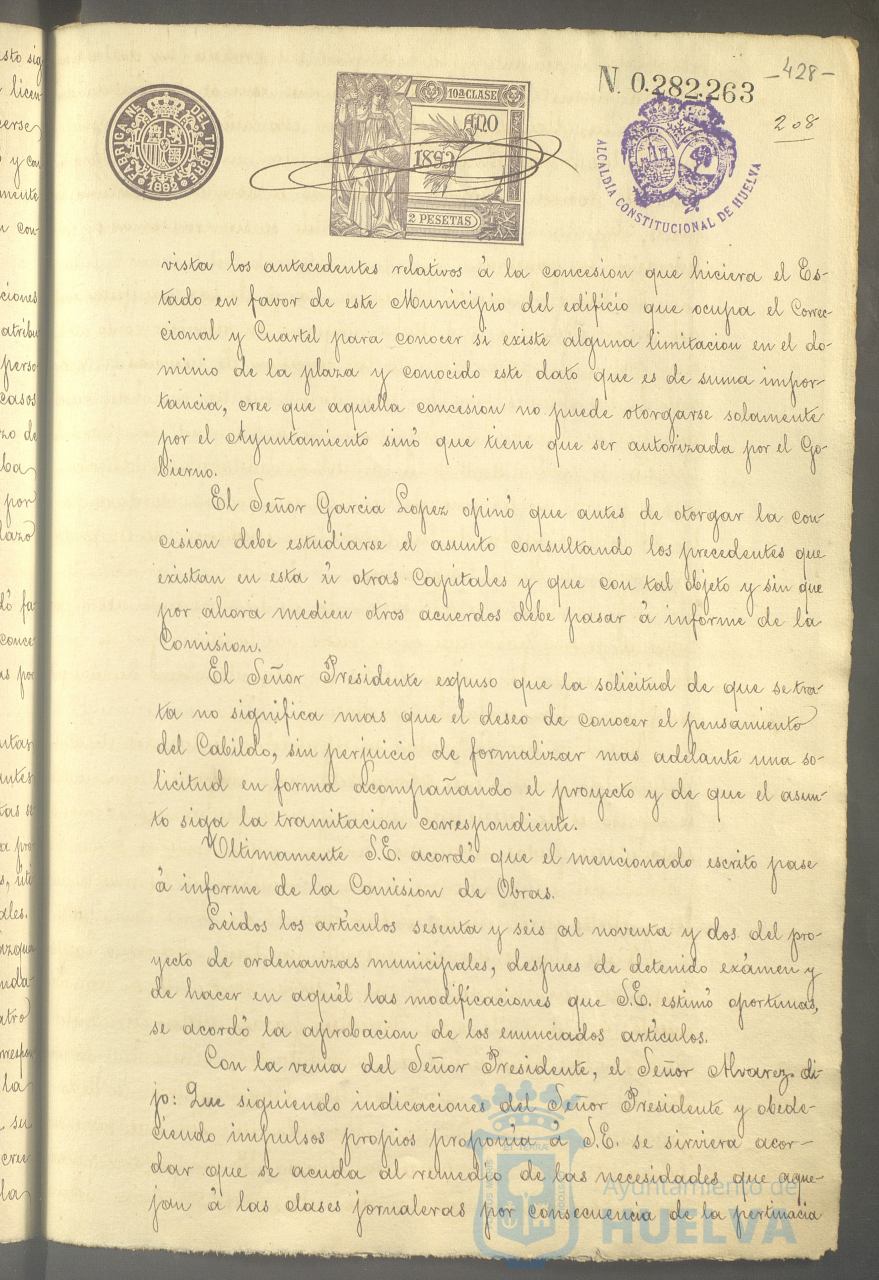 -428-
N. 0.282.263
208
FÁBRICA NL. DEL TIMBRE
1892
10ª CLASE
AÑO
1892
2 PESETAS
ALCALDÍA CONSTITUCIONAL DE HUELVA
vista los antecedentes relativos á la concesion que hiciera el Es-
tado en favor de este Municipio del edificio que ocupa el Correc-
cional y Cuartel para conocer si existe alguna limitacion en el do-
minio de la plaza y conocido este dato que es de suma impor-
tancia, cree que aquella concesion no puede otorgarse solamente
por el Ayuntamiento sinó que tiene que ser autorizada por el Go-
bierno.
El Señor Garcia Lopez opinó que antes de otorgar la con
cesion debe estudiarse el asunto consultando los precedentes que
existan en esta ú otras Capitales y que con tal objeto y sin que
por ahora medien otros acuerdos debe pasar á informe de la
Comision.
El Señor Presidente expuso que la solicitud de que se tra-
ta no significa mas que el deseo de conocer el pensamiento
del Cabildo, sin perjuicio de formalizar mas adelante una so-
licitud en forma acompañando el proyecto y de que el asun-
to siga la tramitacion correspondiente.
Ultimamente S.E. acordó que el mencionado escrito pase
á informe de la Comision de Obras.
Leidos los artículos sesenta y seis al noventa y dos del pro-
yecto de ordenanzas municipales, despues de detenido exámen y
de hacer en aquél las modificaciones que S.E. estimó oportunas,
se acordó la aprobacion de los enunciados artículos.
Con la venia del Señor Presidente, el Señor Alvarez di-
jo: Que siguiendo indicaciones del Señor Presidente y obede-
ciendo impulsos propios proponia á S.E. se sirviera acor-
dar que se acuda al remedio de las necesidades que aque-
jan á las clases jornaleras por consecuencia de la pertinacia
Ayuntamiento de
HUELVA